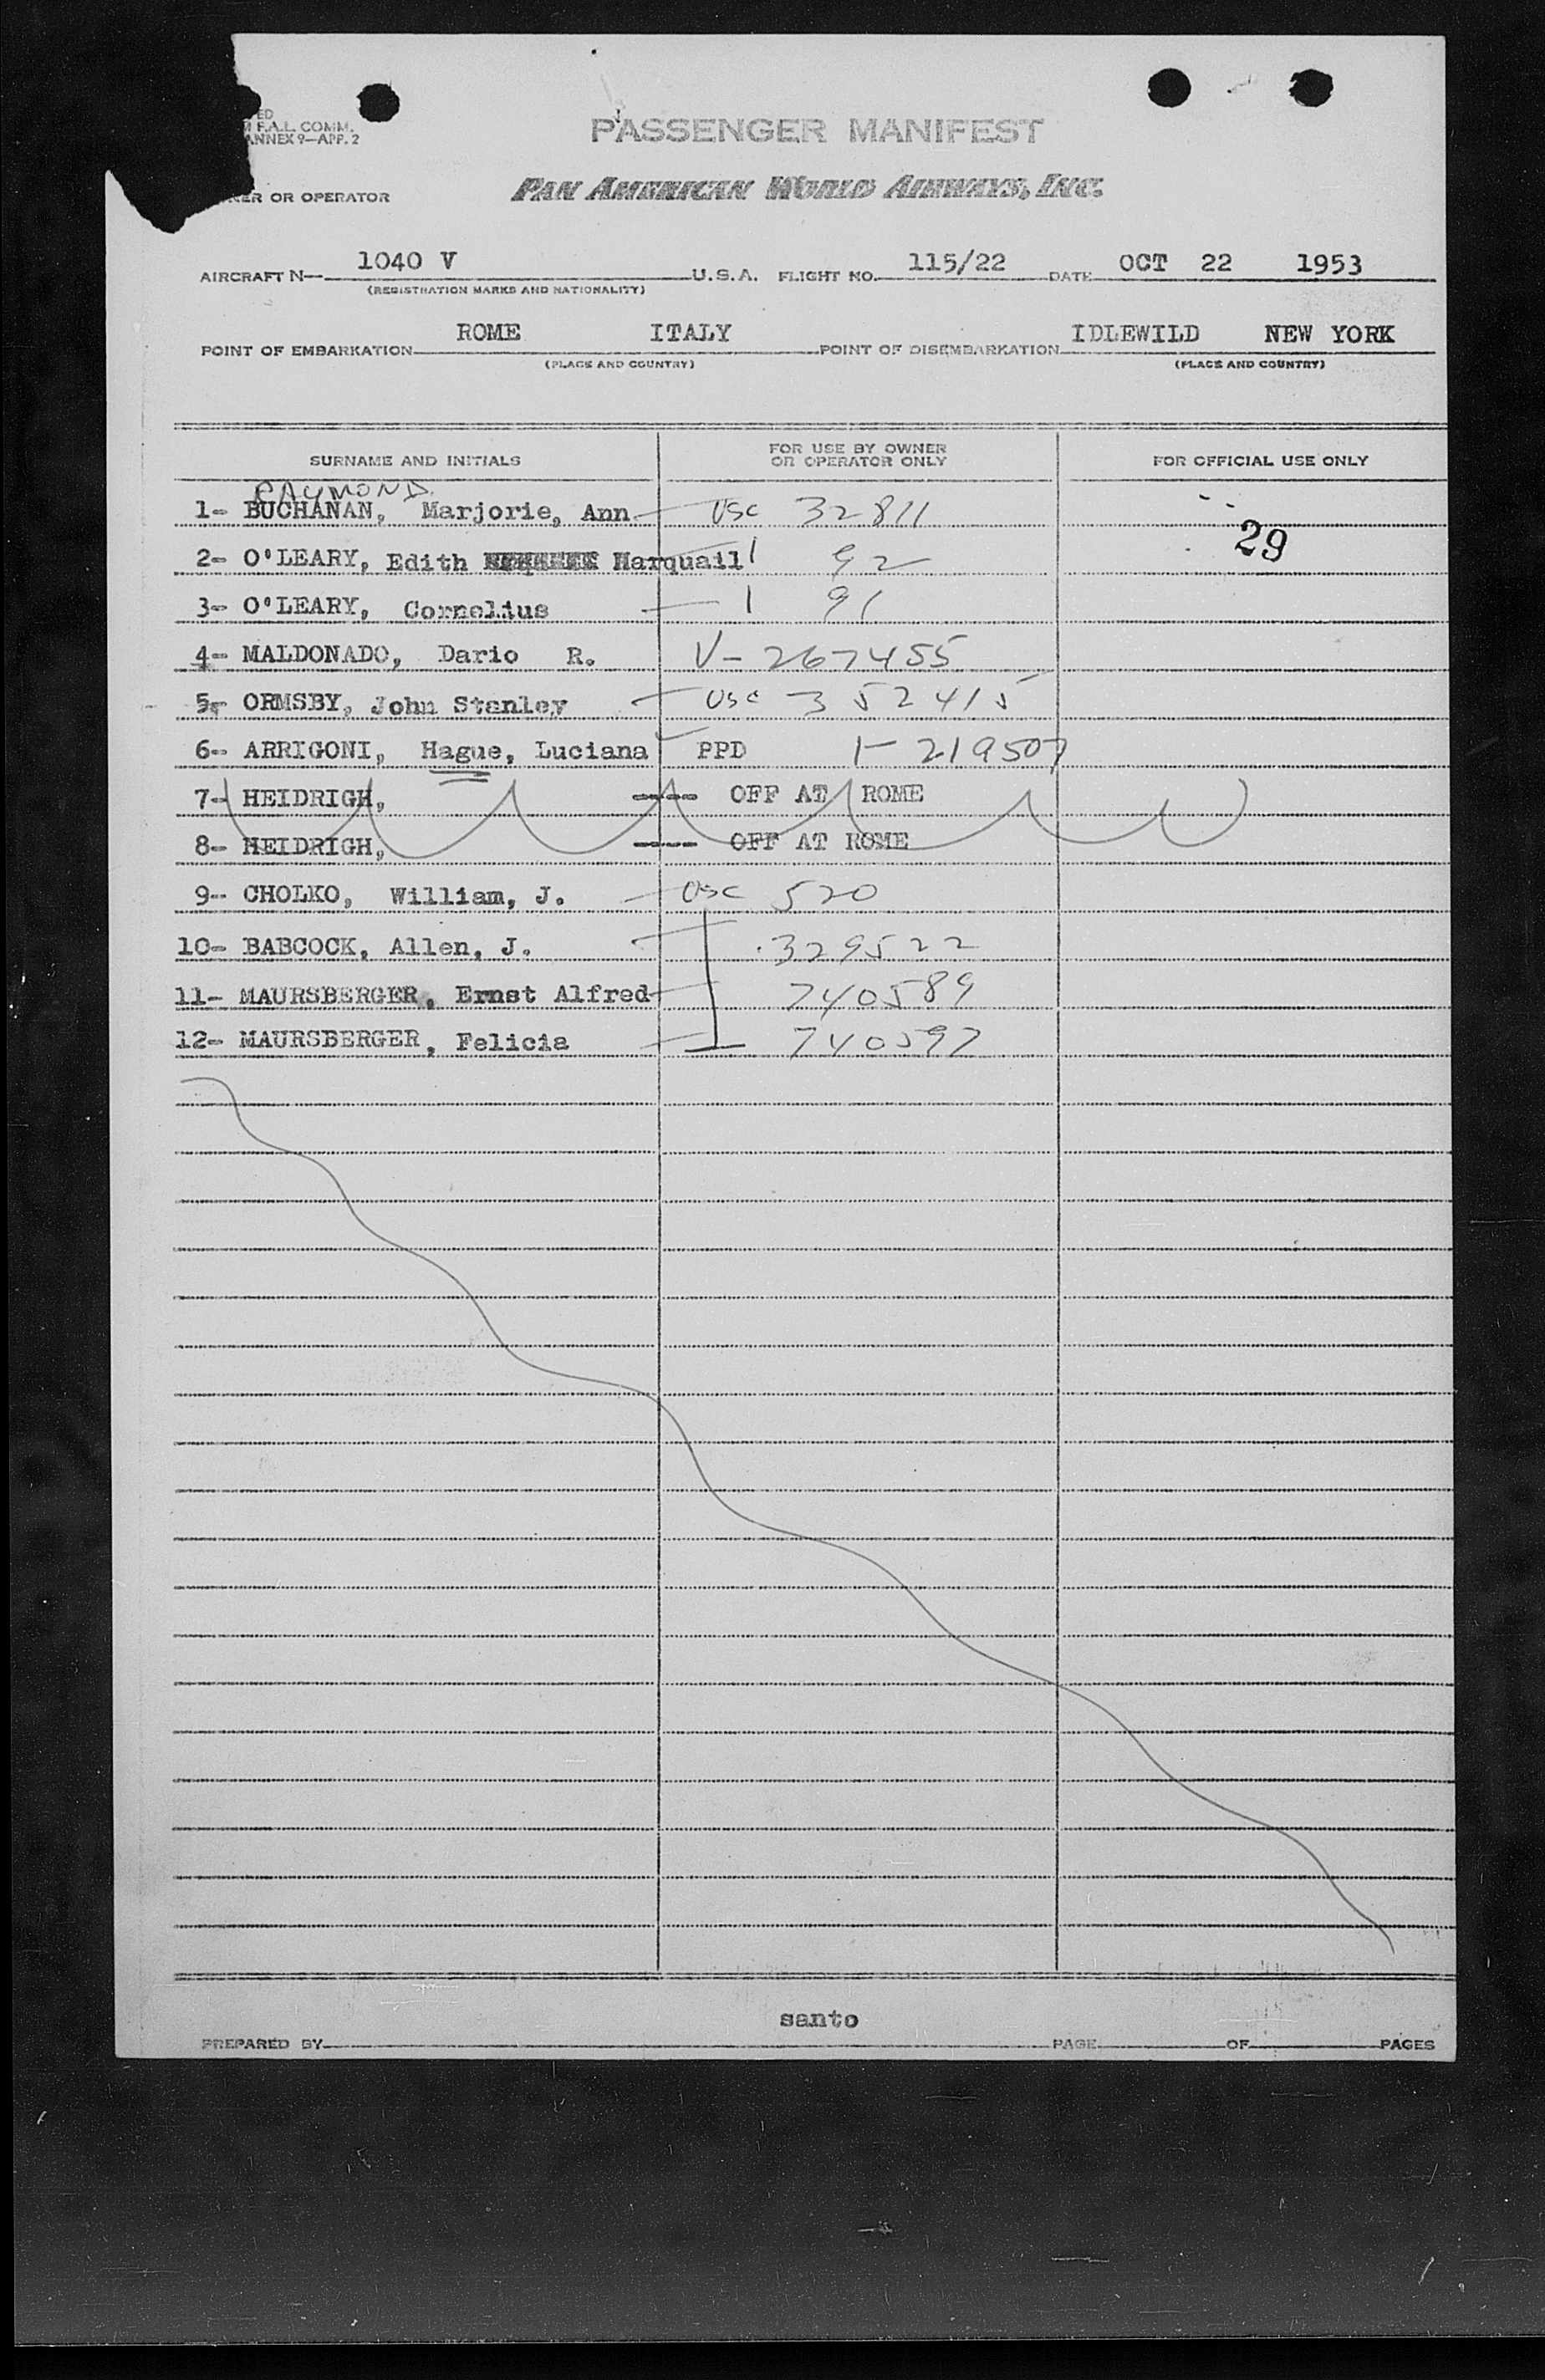 ED
F.A.L. COMM.
ANNEX 9—APP. 2
PASSENGER MANIFEST
OR OPERATOR
PAN AMERICAN WORLD AIRWAYS, INC.
AIRCRAFT N— 1040 V U.S.A. FLIGHT NO. 115/22 DATE OCT 22 1953
(REGISTRATION MARKS AND NATIONALITY)
POINT OF EMBARKATION ROME ITALY POINT OF DISEMBARKATION IDLEWILD NEW YORK
(PLACE AND COUNTRY) (PLACE AND COUNTRY)
SURNAME AND INITIALS FOR USE BY OWNER OR OPERATOR ONLY FOR OFFICIAL USE ONLY
RAYMOND
1- BUCHANAN, Marjorie, Ann USC 32811
29
2- O'LEARY, Edith Marquail 92
3- O'LEARY, Cornelius 91
4- MALDONADO, Dario R. V-267455
5- ORMSBY, John Stanley USC 352415
6- ARRIGONI, Hague, Luciana PPD 1-219507
7- HEIDRIGH, ---- OFF AT ROME
8- HEIDRIGH, ---- OFF AT ROME
9- CHOLKO, William, J. USC 520
10- BABCOCK, Allen, J. 329522
11- MAURSBERGER, Ernst Alfred 740589
12- MAURSBERGER, Felicia 740597
santo
PREPARED BY PAGE OF PAGES